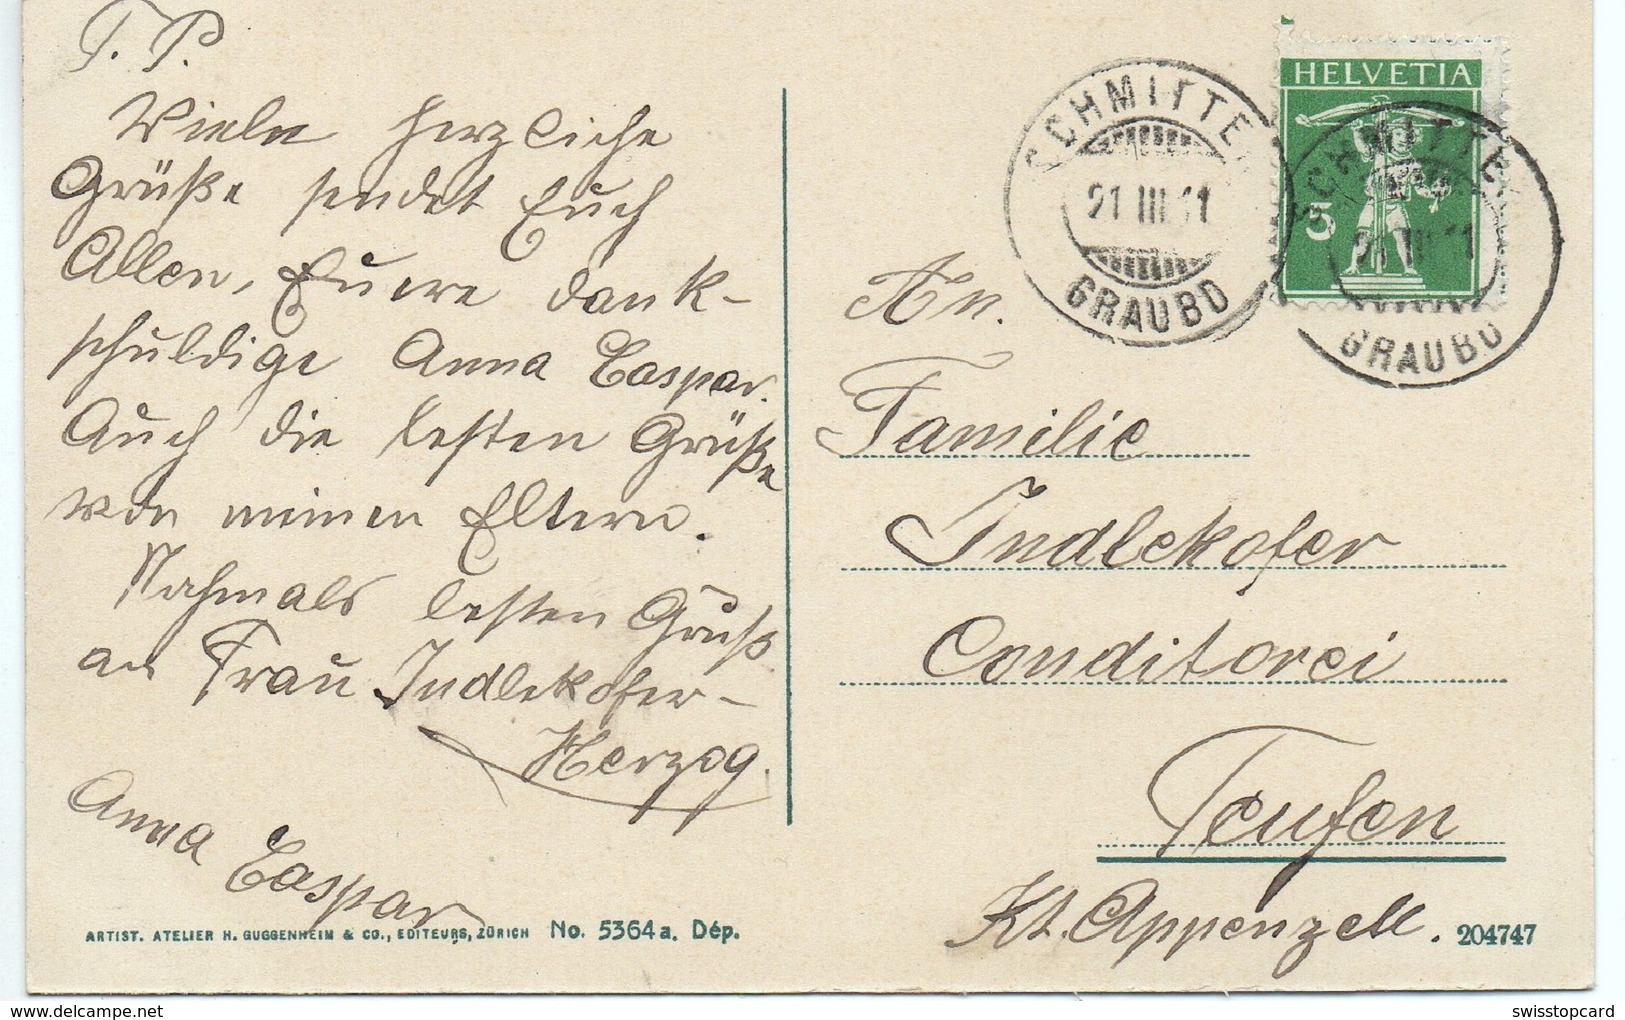 T. P.
Viele herzliche
Grüße sendet Euch
Allen, Euere dank-
schuldige Anna Caspar.
Auch die besten Grüße
von meinen Eltern.
Nochmals besten Gruß
an Frau Indlekofer-
Herzog.
Anna Caspar
ARTIST. ATELIER H. GUGGENHEIM & CO., EDITEURS, ZÜRICH No. 5364a. Dép.
HELVETIA
5
SCHMITTEN
21 III 11
GRAUBD
SCHMITTEN
21 III 11
GRAUBD
An.
Familie
Indlekofer
Conditorei
Teufen
Kt. Appenzell.
204747
www.delcampe.net
swisstopcard